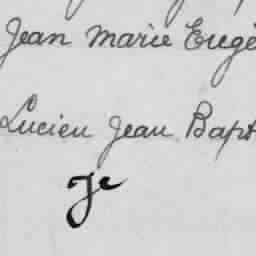 Jean Marie Eugè
Lucien Jean Bapt
Je